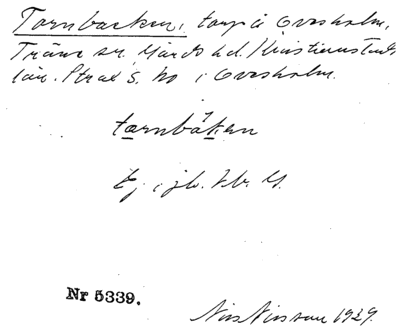 Tornbacken, torp å Ovesholm,
Träne sn, Gärds hd. Kristianstads
län. Strax S. ho i Ovesholm.
tærnbákan
Ej i jb.
Nr 5339.
Nils Nilsson 1929.